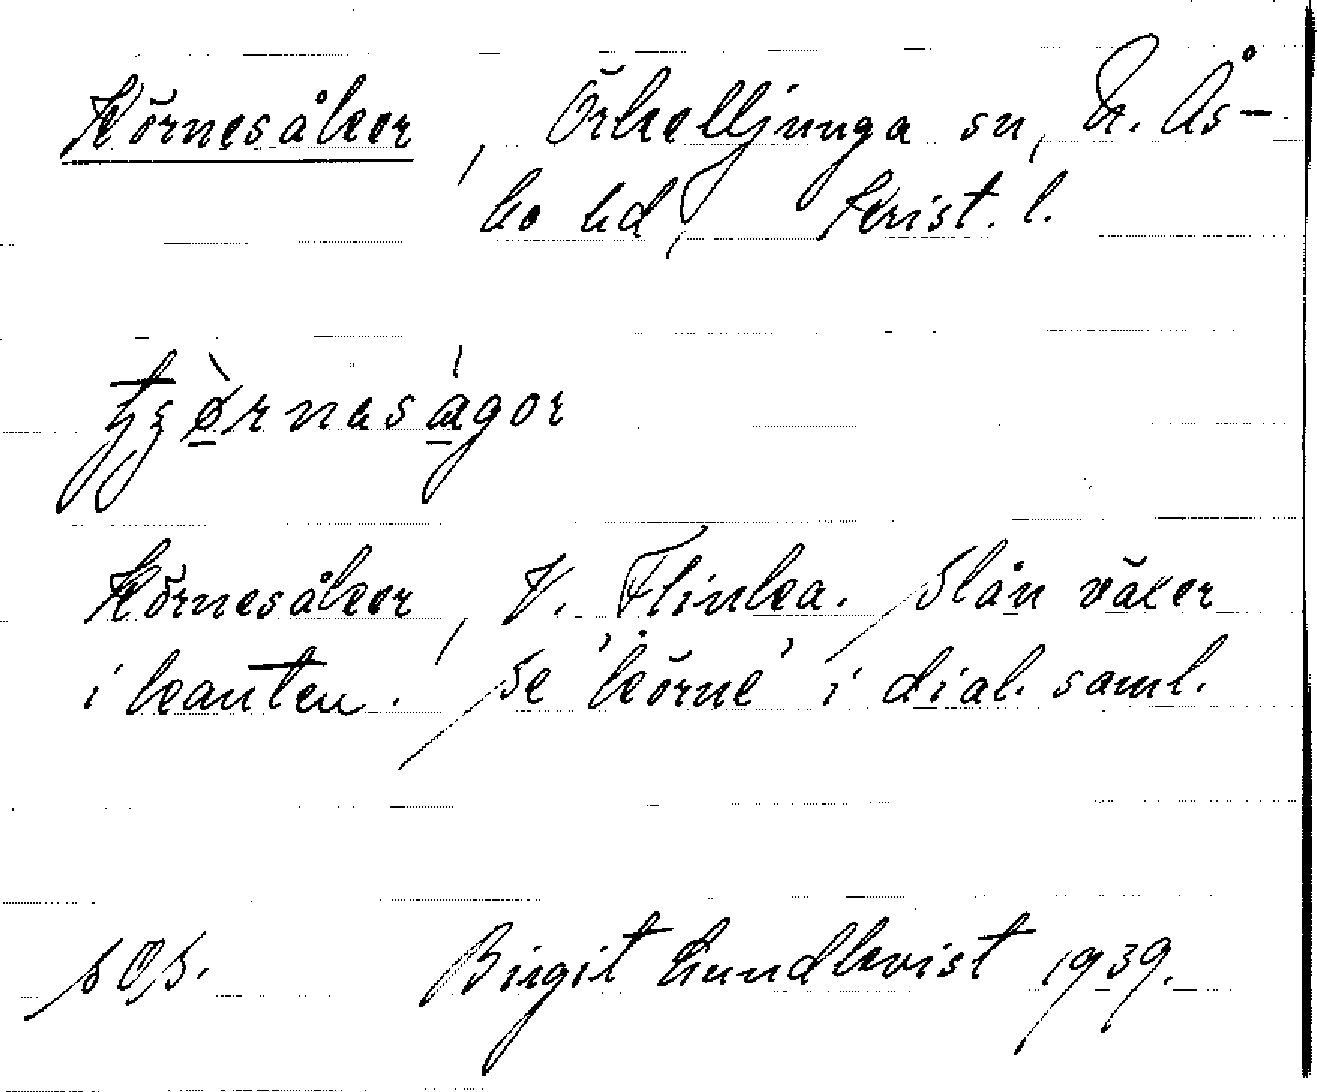 Körnesåker, Örkelljunga sn, N. Ås-
bo hd, Krist. l.
Körnesåker, V. Flinka. Slån växer
i kanten. Se 'körne' i dial. saml.
Birgit Lundkvist 1939.